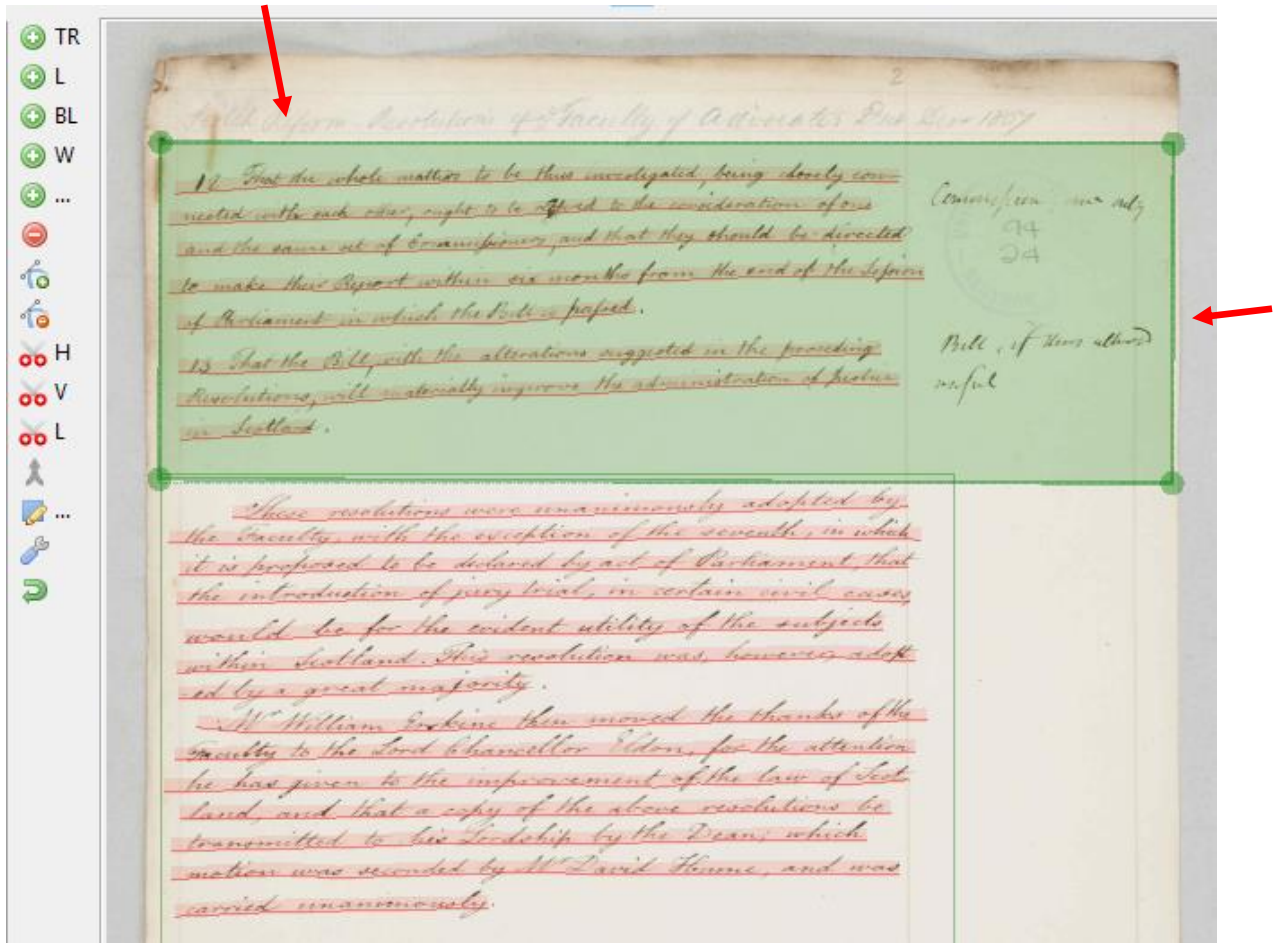 TR
L
BL
W
...
H
V
L
...
2
Reform Resolutions of Faculty of Advocates Decr 1807
12 That the whole matters to be thus investigated, being closely con-
nected with each other, ought to be referred to the consideration of one
and the same set of Commissioners, and that they should be directed
to make their Report within six months from the end of the Session
of Parliament in which the Bill is passed.
13 That the Bill, with the alterations suggested in the preceding
Resolutions, will materially improve the administration of Justice
in Scotland.
Commission one only
94
24
Bill, if thus altered
useful
These resolutions were unanimously adopted by
the Faculty, with the exception of the seventh, in which
it is proposed to be declared by act of Parliament, that
the introduction of jury trial, in certain civil cases,
would be for the evident utility of the subjects
within Scotland. This resolution was, however, adopt
-ed by a great majority.
Mr William Erskine then moved the thanks of the
Faculty to the Lord Chancellor Eldon, for the attention
he has given to the improvement of the law of Scot
land, and that a copy of the above resolutions be
transmitted to his Lordship by the Dean; which
motion was seconded by Mr David Hume, and was
carried unanimously.